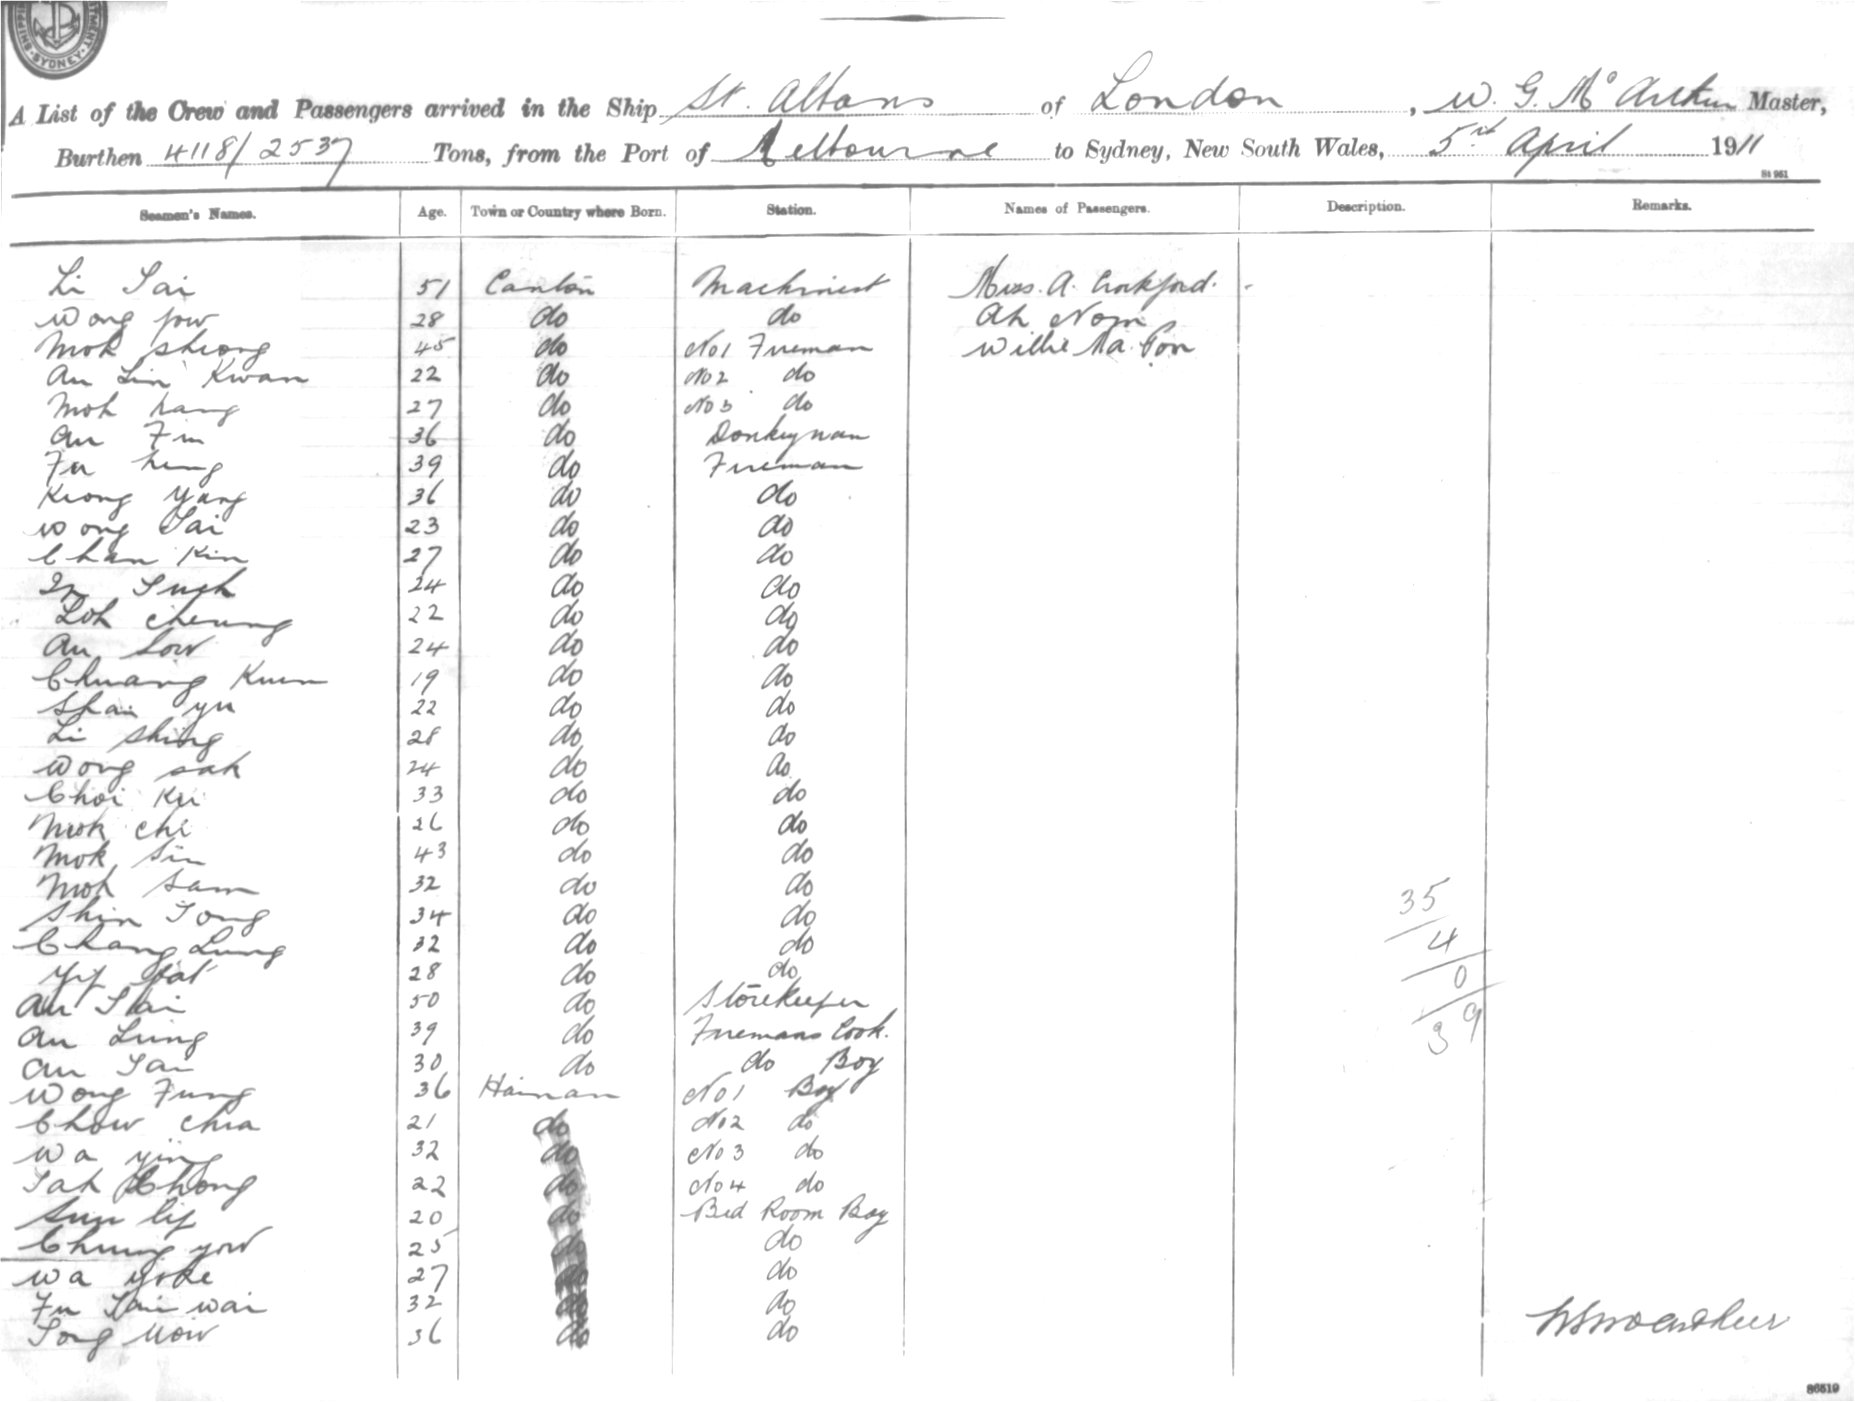 SHIPPING
SYDNEY
A List of the Crew and Passengers arrived in the Ship St. Albans of London, W. G. McArthur Master,
Burthen 4118/2537 Tons, from the Port of Melbourne to Sydney, New South Wales, 5th April 1911
St 951
Seamen's Names. Age. Town or Country where Born. Station. Names of Passengers. Description. Remarks.
Li Tai 51 Canton Machinist A.
Wong 28 do do Ah Nom
Mok 45 do No 1 Fireman Willie
Au Lin Kwan 22 do No 2 do
Mok hang 27 do No 3 do
Au 36 do Donkeyman
Fu 39 do Fireman
Keong Yang 36 do do
Wong Tai 23 do do
Chan Kin 27 do do
24 do do
Loh Cheung 22 do do
Au Sow 24 do do
Chuang Kum 19 do do
Yu 22 do do
Li Shing 28 do do
Wong sak 24 do do
Choi Ku 33 do do
Mok Chi 26 do do
Mok Sin 43 do do
Mok Sam 32 do do
Shin Tong 34 do do
Chang Lung 32 do do
Yip 28 do do
Au 50 do Storekeeper
Au Lung 39 do Firemans Cook.
Au Tai 30 do do Boy
Wong Fung 36 Hainan No 1 Boy
Chow Chia 21 do No 2 do
Wa Ying 32 do No 3 do
Tah Chong 22 do No 4 do
Sun 20 do Bed Room Boy
Chung Yow 25 do do
Wa Yoke 27 do do
Fu wai 32 do do
Tong Mow 36 do do
35
4
0
39
W G McArthur
86519